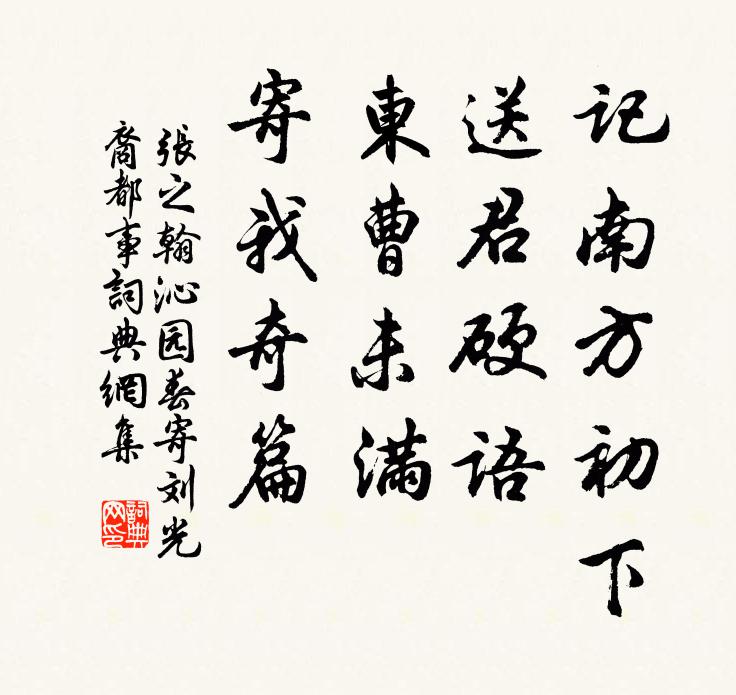 記南方初下
送君硬語
東曹未滿
寄我奇篇
張之翰沁园春寄刘光
裔都事詞典網集
詞典
网印